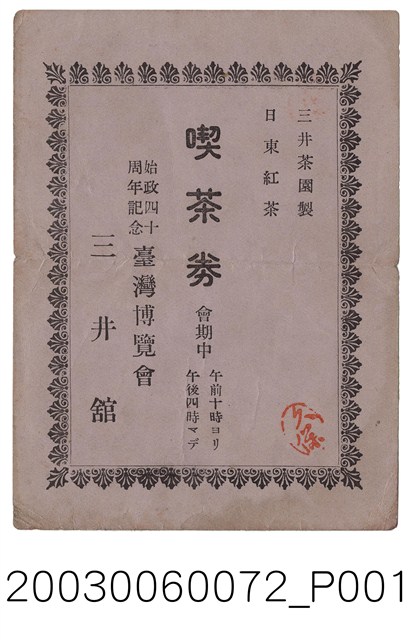 三井茶園製
日東紅茶
喫茶券
會期中
午前十時ヨリ
午後四時マデ
始政四十
周年記念
臺灣博覽會
三井舘
20030060072_P001